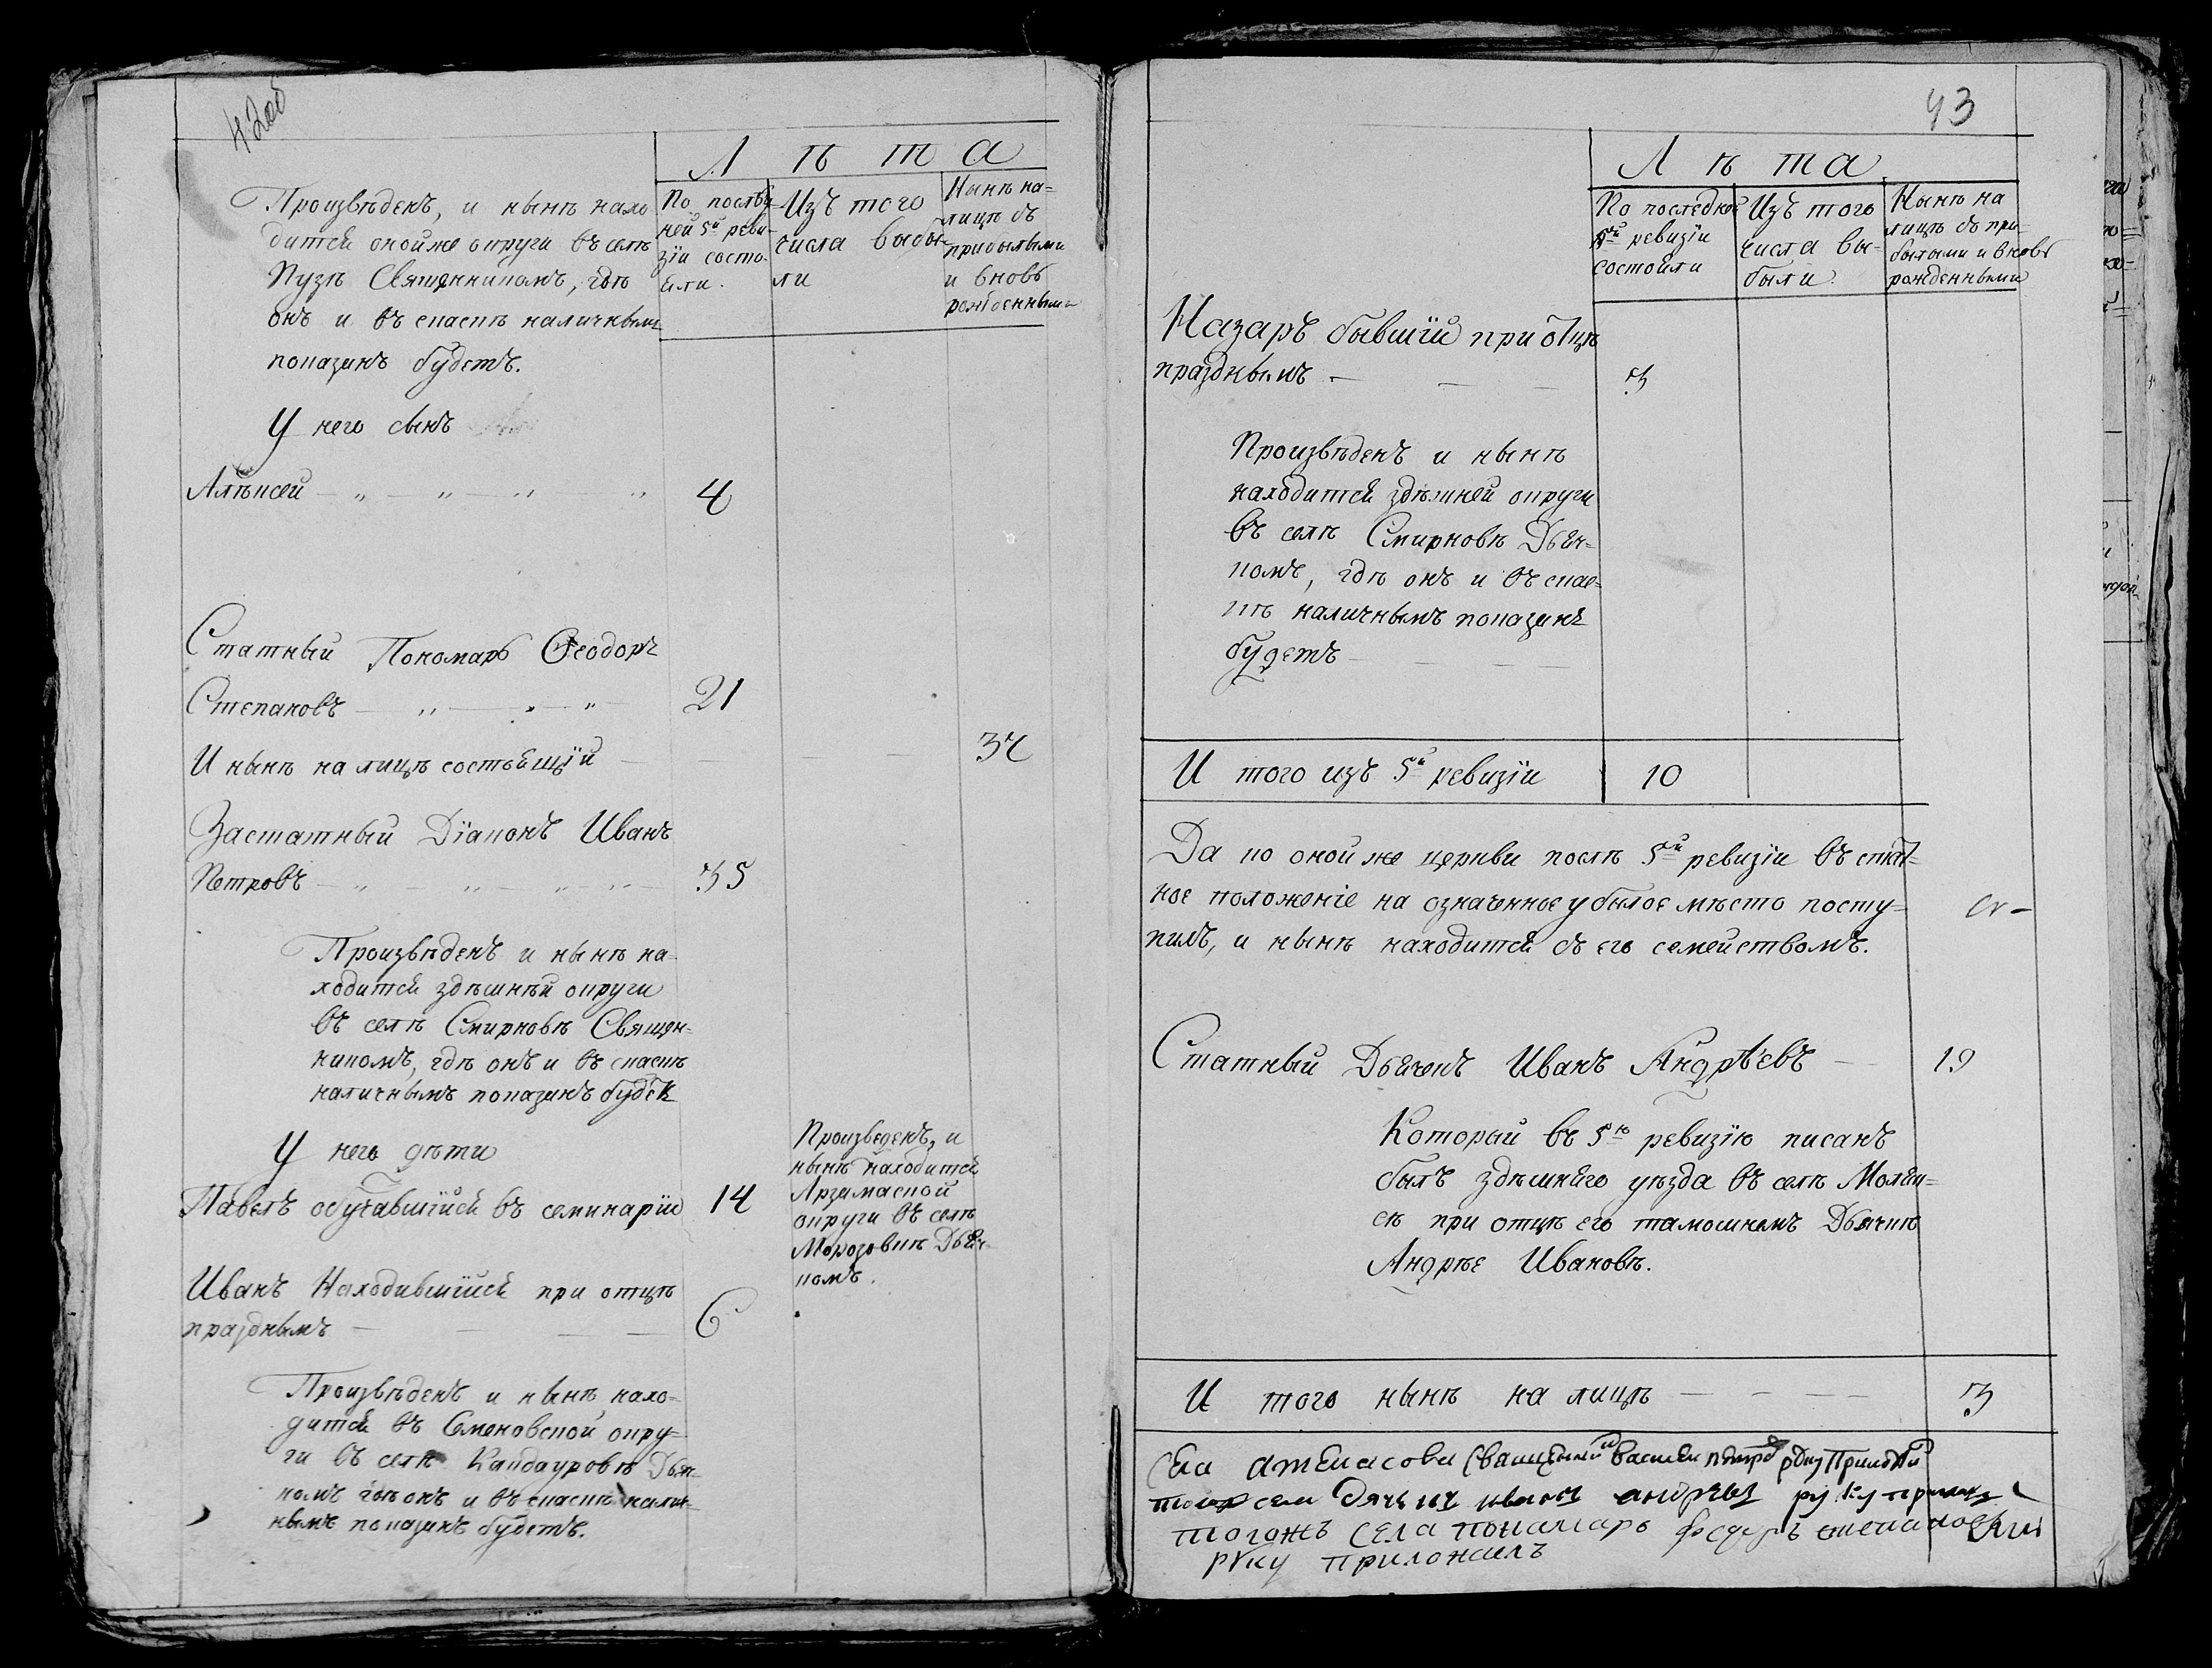 42об
Лѣта
По послѣд-
ней 5й реви-
зіи состо-
яли.
Изъ того
числа выбы-
ли
Нынѣ на-
лицѣ съ
прибылыми
и вновь
рожденными
Произвѣденъ, и нынѣ нахо
дится оной же округи въ селѣ
Пузѣ Священникомъ, гдѣ
онъ и въ сказкѣ наличнымъ
показанъ будетъ.
У него сынъ
Алѣксей — 4
Статный Пономарь Феодоръ
Степановъ — 21
И нынѣ на лицѣ состоящій — 34
Застатный Діаконъ Иванъ
Петровъ — 35
Произвѣденъ и нынѣ на-
ходится здѣшнѣй округи
въ селѣ Смирновѣ Священ-
никомъ, гдѣ онъ и въ сказкѣ
наличнымъ показанъ будетъ
У него дѣти
Павелъ обучавшійся въ семинаріи 14
Произведенъ, и
нынѣ находится
Арзамаской
округи въ селѣ
Морозовкѣ Дьяч-
комъ.
Иванъ Находившійся при отцѣ
празднымъ — 6
Произвѣденъ и нынѣ нахо-
дится въ Семеновской окру-
ги въ селѣ Кандауровѣ Дьяч-
комъ гдѣ онъ и въ сказкѣ налич-
нымъ показанъ будетъ.
43
Лѣта
По последней
5й ревизіи
состояли
Изъ того
числа вы-
были
Нынѣ на
лицѣ съ при-
былыми и вновь
рожденными
Назаръ бывшій при отцѣ
празднымъ — 3
Произвѣденъ и нынѣ
находится здѣшней округи
въ селѣ Смирновѣ Дьяч-
комъ, гдѣ онъ и въ сказ-
кѣ наличнымъ показанъ
будетъ
И того изъ 5й ревизіи 10
Да по оной же церкви послѣ 5й ревизіи въ стат-
ное положеніе на означенное убылое мѣсто посту-
пилъ, и нынѣ находится съ его семействомъ.
Статный Дьячекъ Иванъ Андрѣевъ — 19
Который въ 5ю ревизію писанъ
былъ здѣшняго уѣзда въ селѣ
при отцѣ его тамошнемъ Дьячкѣ
Андрѣе Ивановѣ.
И того нынѣ на лицѣ — 3
Села Священникъ Василей Петровъ руку приложилъ
села дячекъ иванъ андреевъ руку приложилъ
тогожъ села понамарь федоръ степановъ
руку приложилъ